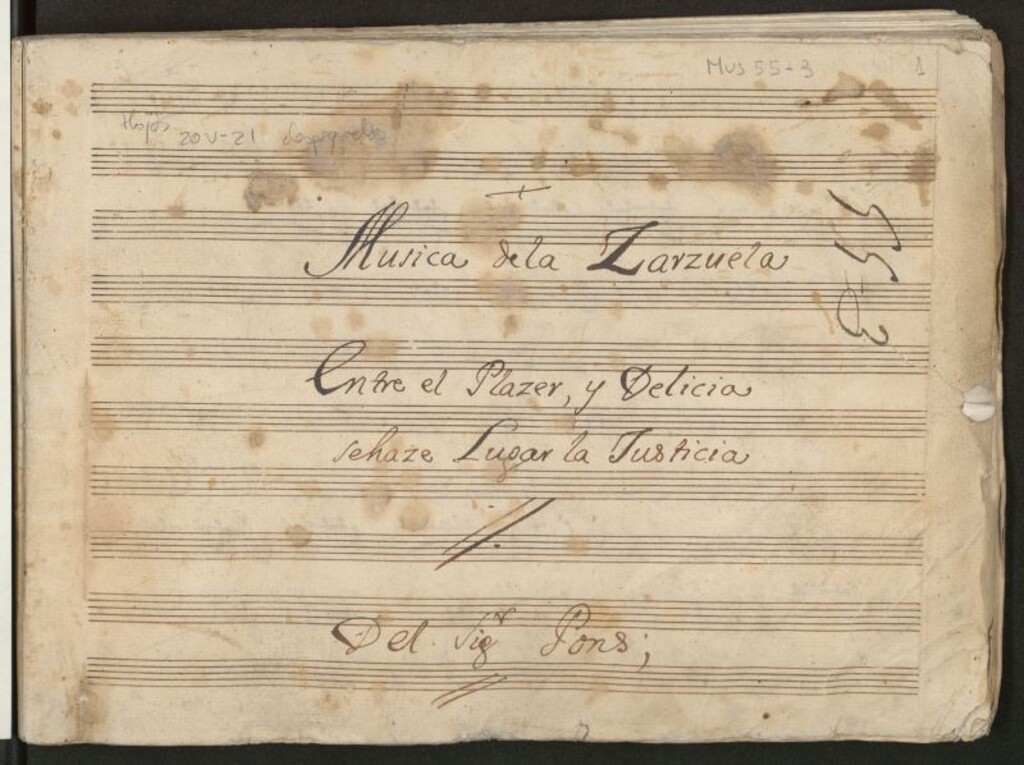 Mus 55-3
1
12-NOV
+
Musica dela Zarzuela
55-3
Entre el Plazer, y Delicia
sehaze Lugar la Justicia
Del Sigr Pons;